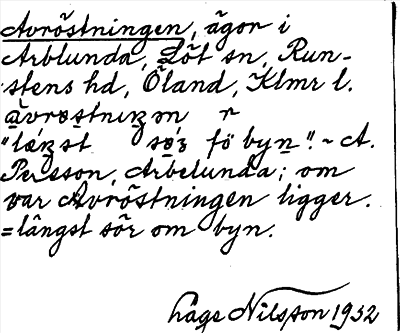 Avröstningen, ägor i
Arblunda, Löt sn, Run-
stens hd, Öland, Klmr l.
"læŋst søʒ fö byn". ~ A.
Persson, Arbelunda; om
var Avröstningen ligger.
=längst sör om byn.
Håge Nilsson 1932